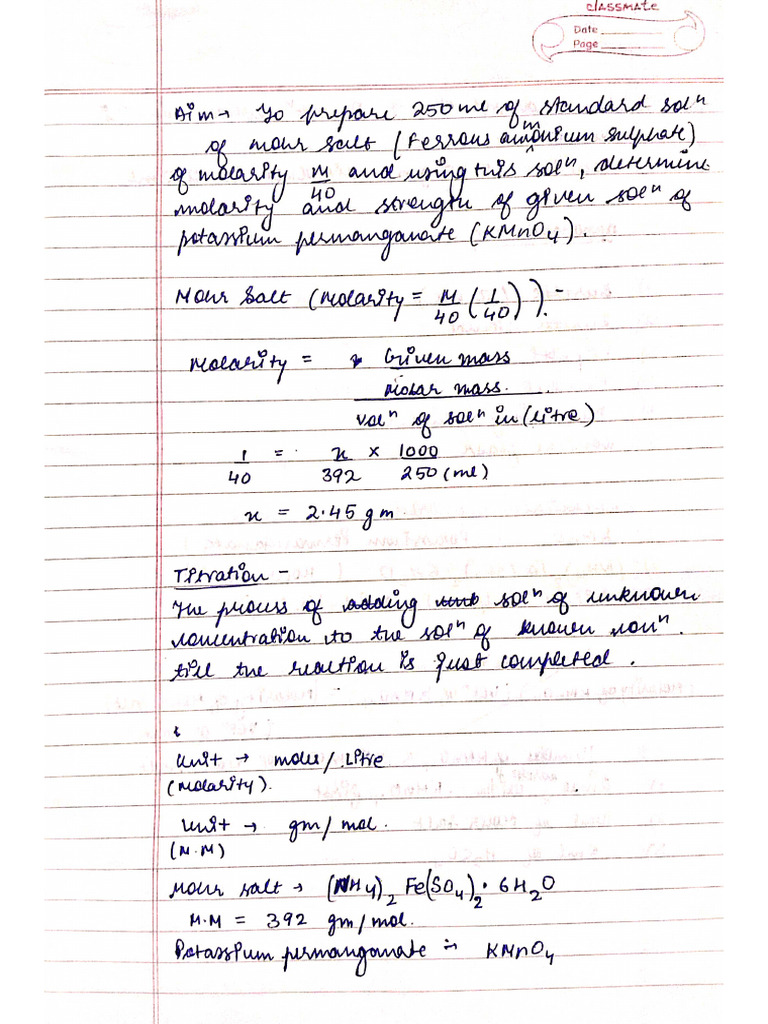 classmate
Date
Page
Aim → To prepare 250 ml of standard solⁿ
of mohr salt (Ferrous ammonium sulphate)
of molarity M/40 and using this solⁿ, determine
molarity and strength of given solⁿ of
potassium permanganate (KMnO₄).
Mohr Salt (Molarity = M/40 (1/40)).-
Molarity = Given mass
Molar mass.
Volⁿ of solⁿ in (litre)
1/40 = x/392 × 1000/250 (ml)
x = 2.45 gm
Titration -
The process of adding solⁿ of unknown
concentration to the solⁿ of known conⁿ.
till the reaction is just completed.
Unit → moles/Litre
(Molarity).
Unit → gm/mol.
(M.M)
Mohr salt → (NH₄)₂ Fe(SO₄)₂·6H₂O
M.M = 392 gm/mol.
Potassium permanganate ÷ KMnO₄